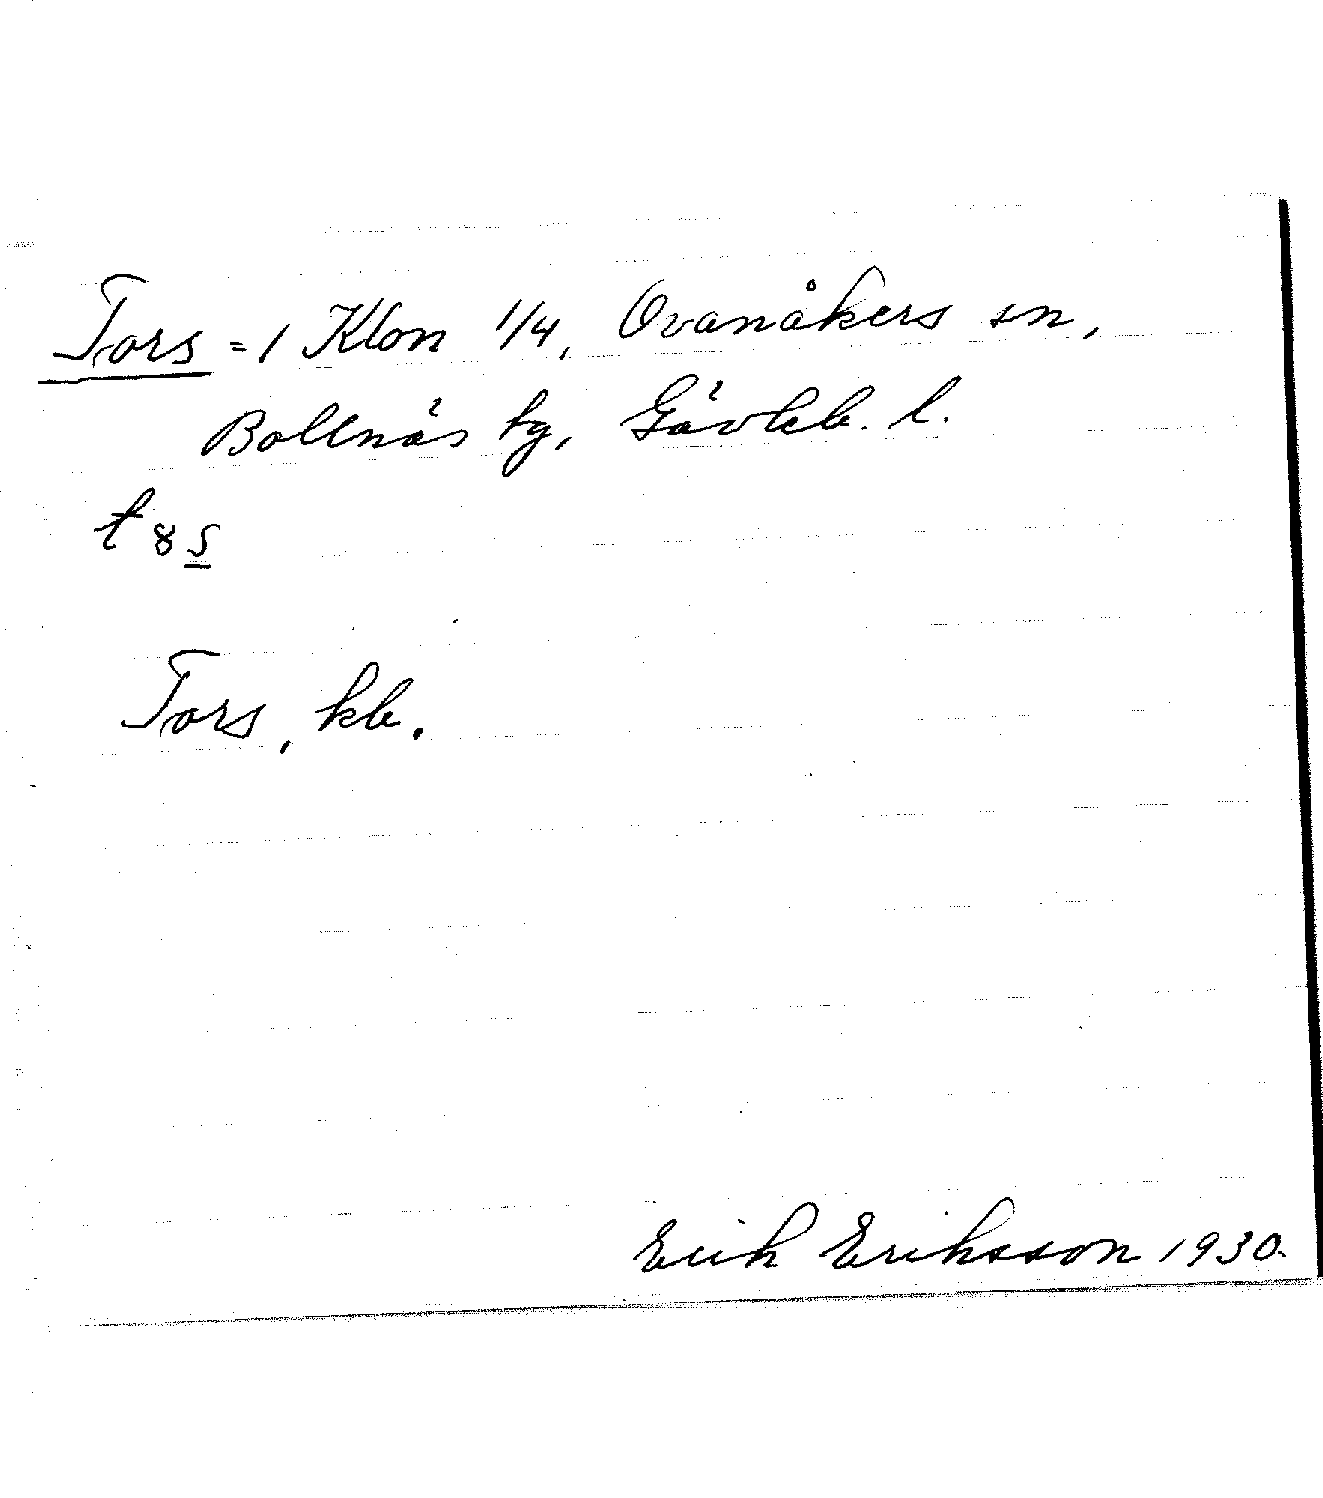 Tors = 1 Klon 1/4, Ovanåkers sn,
Bollnäs tg, Gävleb. l.
t 8 s
Tors, kb.
Erik Eriksson 1930.